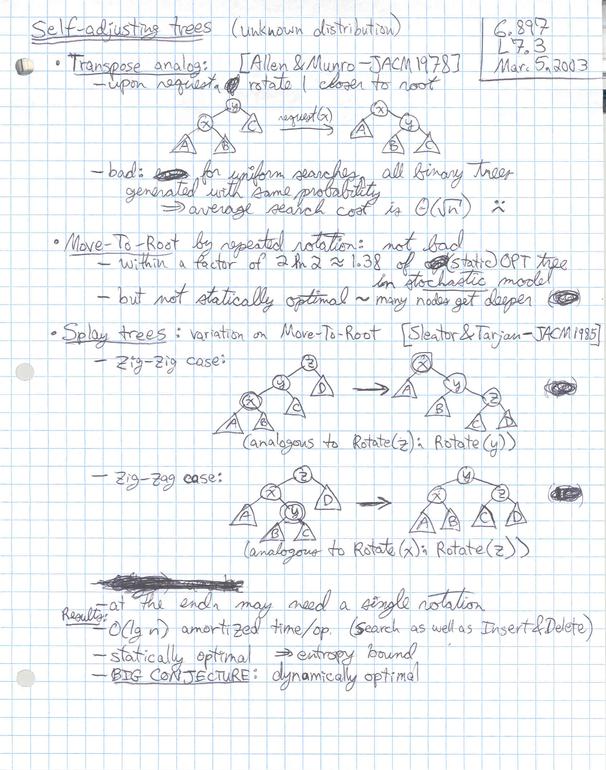 Self-adjusting trees (unknown distribution)
6.897
L7.3
Mar. 5, 2003
• Transpose analog: [Allen & Munro - JACM 1978]
- upon request, rotate 1 closer to root
y
x
C
A
B
request(x)
x
A
y
B
C
- bad: for uniform searches, all binary trees
generated with same probability
⇒ average search cost is Θ(√n) :(
• Move-To-Root by repeated rotation: not bad
- within a factor of 2 ln 2 ≈ 1.38 of (static) OPT tree
in stochastic model
- but not statically optimal ~ many nodes get deeper
• Splay trees: variation on Move-To-Root [Sleator & Tarjan - JACM 1985]
- Zig-zig case:
z
y
D
x
C
A
B
x
A
y
B
z
C
D
(analogous to Rotate(z); Rotate(y))
- Zig-zag case:
z
x
D
A
y
B
C
y
x
z
A
B
C
D
(analogous to Rotate(x); Rotate(z))
- at the end, may need a single rotation
Results:
- O(lg n) amortized time/op. (Search as well as Insert & Delete)
- statically optimal ⇒ entropy bound
- BIG CONJECTURE: dynamically optimal